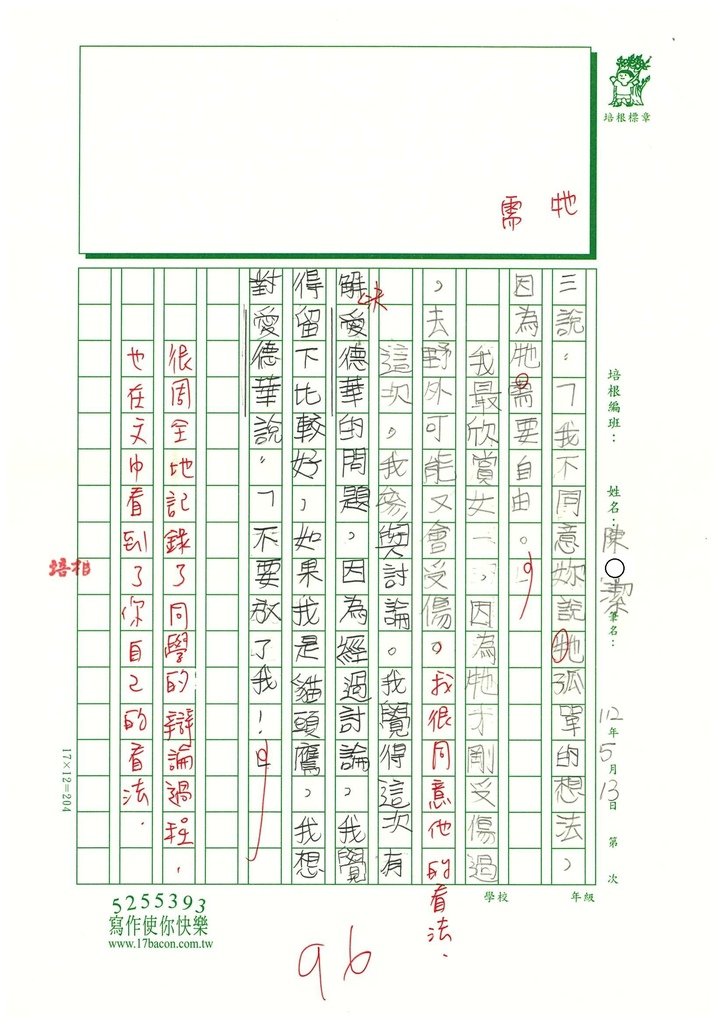 培根標章
牠
需
培根編班：
姓名：陳○潔
筆名：
12年5月13日 第 次
年級
學校
三說：「我不同意妳說牠孤單的想法，
因為牠需要自由。」
我最欣賞女一，因為牠才剛受傷過
，去野外可能又會受傷。我很同意他的看法.
這次，我參與討論。我覺得這次有
解決愛德華的問題，因為經過討論，我覺
得留下比較好，如果我是貓頭鷹，我想
對愛德華說：「不要放了我！」
很周全地記錄了同學的辯論過程，
也在文中看到了你自己的看法.
培相
17×12=204
5255393
寫作使你快樂
www.17bacon.com.tw
96